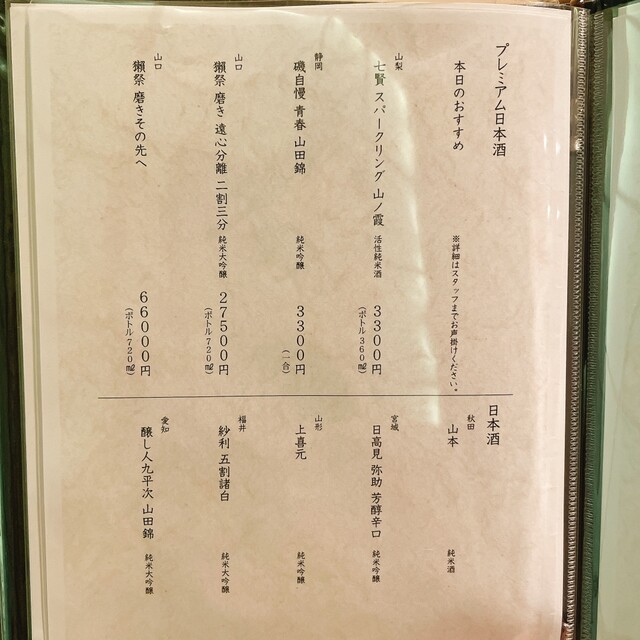 プレミアム日本酒
本日のおすすめ ※詳細はスタッフまでお声掛けください。
山梨
七賢 スパークリング 山ノ霞 活性純米酒 3300円
(ボトル 360㎖)
静岡
磯自慢 青春 山田錦 純米吟醸 3300円
(一合)
山口
獺祭 磨き 遠心分離 二割三分 純米大吟醸 27500円
(ボトル 720㎖)
山口
獺祭 磨きその先へ 66000円
(ボトル 720㎖)
日本酒
秋田
山本 純米酒
宮城
日高見 弥助 芳醇辛口 純米吟醸
山形
上喜元 純米吟醸
福井
紗利 五割諸白 純米大吟醸
愛知
醸し人九平次 山田錦 純米大吟醸